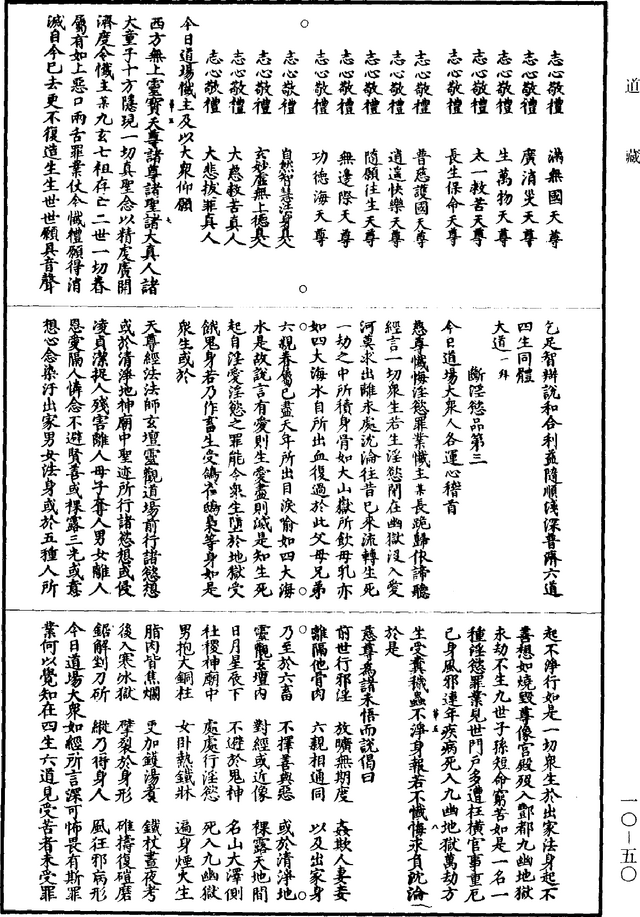 道藏
志心敬禮　滿無國天尊
志心敬禮　廣消災天尊
志心敬禮　生萬物天尊
志心敬禮　太一救苦天尊
志心敬禮　長生保命天尊
志心敬禮　普慈護國天尊
志心敬禮　逍遥快樂天尊
志心敬禮　隨願往生天尊
志心敬禮　無邊際天尊
志心敬禮　功德海天尊
志心敬禮　自然智慧法海真人
志心敬禮　玄妙虛無上德真人
志心敬禮　大慈救苦真人
志心敬禮　大悲拔罪真人
今日道場懺主及以大衆仰願
西方無上靈寶天尊諸尊諸聖諸大真人諸
大童子十方隱現一切真聖念以精虔廣開
濟度令懺主某九玄七祖存亡二世一切眷
屬有如上惡口兩舌罪業仗今懺禮願得消
滅自今已去更不復造生生世世願具音聲
乞足智辯說和合利益隨順淺深普濟六道
四生同體
大道一拜
斷淫慾品第三
今日道場大衆人各運心稽首
慈尊懺悔淫慾罪業懺主某長跪歸依諦聽
經言一切衆生若生淫慾閉在幽獄没入愛
河莫求出離永處沈淪往昔已來流轉生死
一劫之中所積身骨如大山嶽所飲母乳亦
如四大海水自所出血復過於此父母兄弟
六親眷屬已盡天年所出目淚喻如四大海
水是故說言有愛則生愛盡則滅是知生死
起自淫愛淫慾之罪能令衆生墮於地獄受
餓鬼身若乃作畜生受鴿雀鴟梟等身如是
衆生或於
天尊經法法師玄壇靈觀道場前行諸慾想
或於清淨地神廟中聖迹所行諸慾想或侵
凌貞潔捉人殘害離人母子奪人男女離人
恩愛隔人憐念不避賢善或裸露三光或意
想心念染汙出家男女法身或於五種人所
起不淨行如是一切衆生於出家法身起不
善想如燒毀尊像宮殿殁入酆都九幽地獄
永劫不生九世子孫短命窮苦如是一名一
種淫慾罪業見世門戶多遭枉横官事重厄
己身風邪連年疾病死入九幽地獄萬劫方
生受糞穢蟲不淨身報若不懺悔永負沈淪
於是
慈尊為諸未悟而說偈曰
前世行邪淫　放曠無期度　姦欺人妻妾
離隔他骨肉　六親相通同　以及出家身
乃至於六畜　不擇善與惡　或於清淨地
靈觀玄壇内　對經或近像　裸露天地間
日月星夜下　不避於鬼神　名山大澤側
社稷神廟中　處處行淫慾　死入九幽獄
男抱大銅柱　女卧熱鐵牀　遍身煙火生
脂肉皆焦爛　更加鑊湯煮　鐵杖晝夜考
後入寒冰獄　劈裂於身形　碓擣復磑磨
鋸解剉刀斫　縱乃得身人　風狂邪病形
今日道場大衆如經所言深可怖畏有斯罪
業何以覺知在四生六道見受苦者未受罪
一〇—五〇